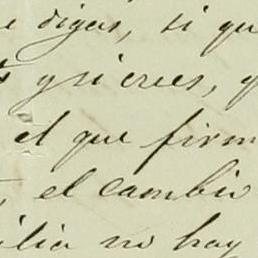 e digas, si qu
y si crees, q
el que firm
, el cambio
ilia no hay